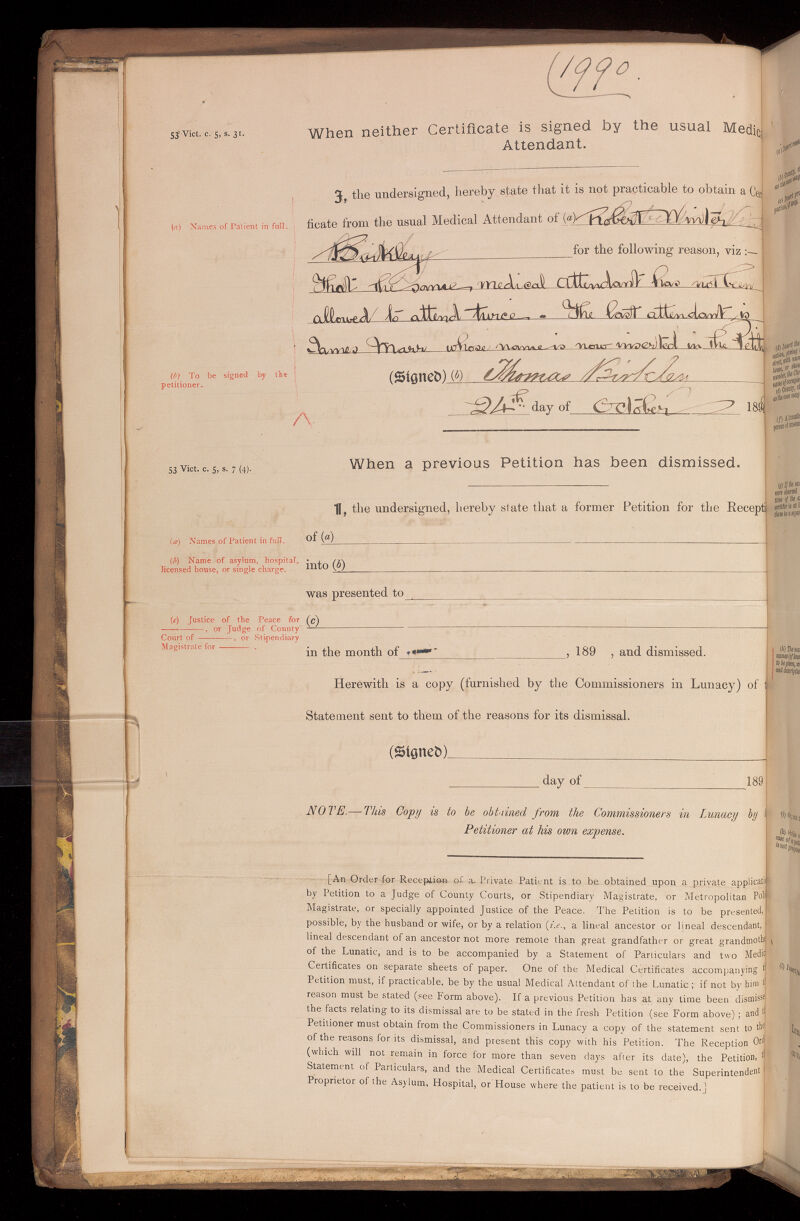 (1990.
53 Vict. c. 5, s. 31.
When neither Certificate is signed by the usual Medic
Attendant.
I, the undersigned, hereby state that it is not practicable to obtain a Cer
(a) Names of Patient in full.
ficate from the usual Medical Attendant of (a) Robert Winter
Birkley for the following reason, viz :—
That the same medical attendant has not been
allowed to attend twice. The last attendant is
James Marr whose name is now inserted in the Petit
(b) To be signed by the
petitioner.
(Signed) (b) Thomas
24th day of October 189
53 Vict. c. 5, s. 7 (4).
When a previous Petition has been dismissed.
I, the undersigned, hereby state that a former Petition for the Recepti
(a) Names of Patient in full.
of (a)
(b) Name of asylum, hospital,
licensed house, or single charge.
into (b)
was presented to
(c) Justice of the Peace for
———, or Judge of County
Court of ———, or Stipendiary
Magistrate for ———.
(c)
in the month of , 189 , and dismissed.
Herewith is a copy (furnished by the Commissioners in Lunacy) of t
Statement sent to them of the reasons for its dismissal.
(Signed)
day of 189
NOTE.—This Copy is to be obtained from the Commissioners in Lunacy by
Petitioner at his own expense.
[An Order for Reception of a Private Patient is to be obtained upon a private applicati
by Petition to a Judge of County Courts, or Stipendiary Magistrate, or Metropolitan Pol
Magistrate, or specially appointed Justice of the Peace. The Petition is to be presented,
possible, by the husband or wife, or by a relation (i.e., a lineal ancestor or lineal descendant,
lineal descendant of an ancestor not more remote than great grandfather or great grandmothe
of the Lunatic, and is to be accompanied by a Statement of Particulars and two Medic
Certificates on separate sheets of paper. One of the Medical Certificates accompanying t
Petition must, if practicable, be by the usual Medical Attendant of the Lunatic ; if not by him t
reason must be stated (see Form above). If a previous Petition has at any time been dismisse
the facts relating to its dismissal are to be stated in the fresh Petition (see Form above) ; and t
Petitioner must obtain from the Commissioners in Lunacy a copy of the statement sent to the
of the reasons for its dismissal, and present this copy with his Petition. The Reception Ord
(which will not remain in force for more than seven days after its date), the Petition, t
Statement of Particulars, and the Medical Certificates must be sent to the Superintendent
Proprietor of the Asylum, Hospital, or House where the patient is to be received.]